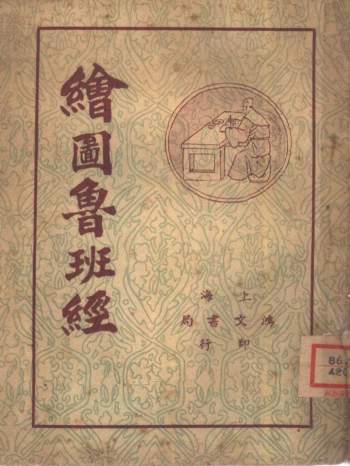 繪圖魯班經
上海
鴻文書局
印行
86.